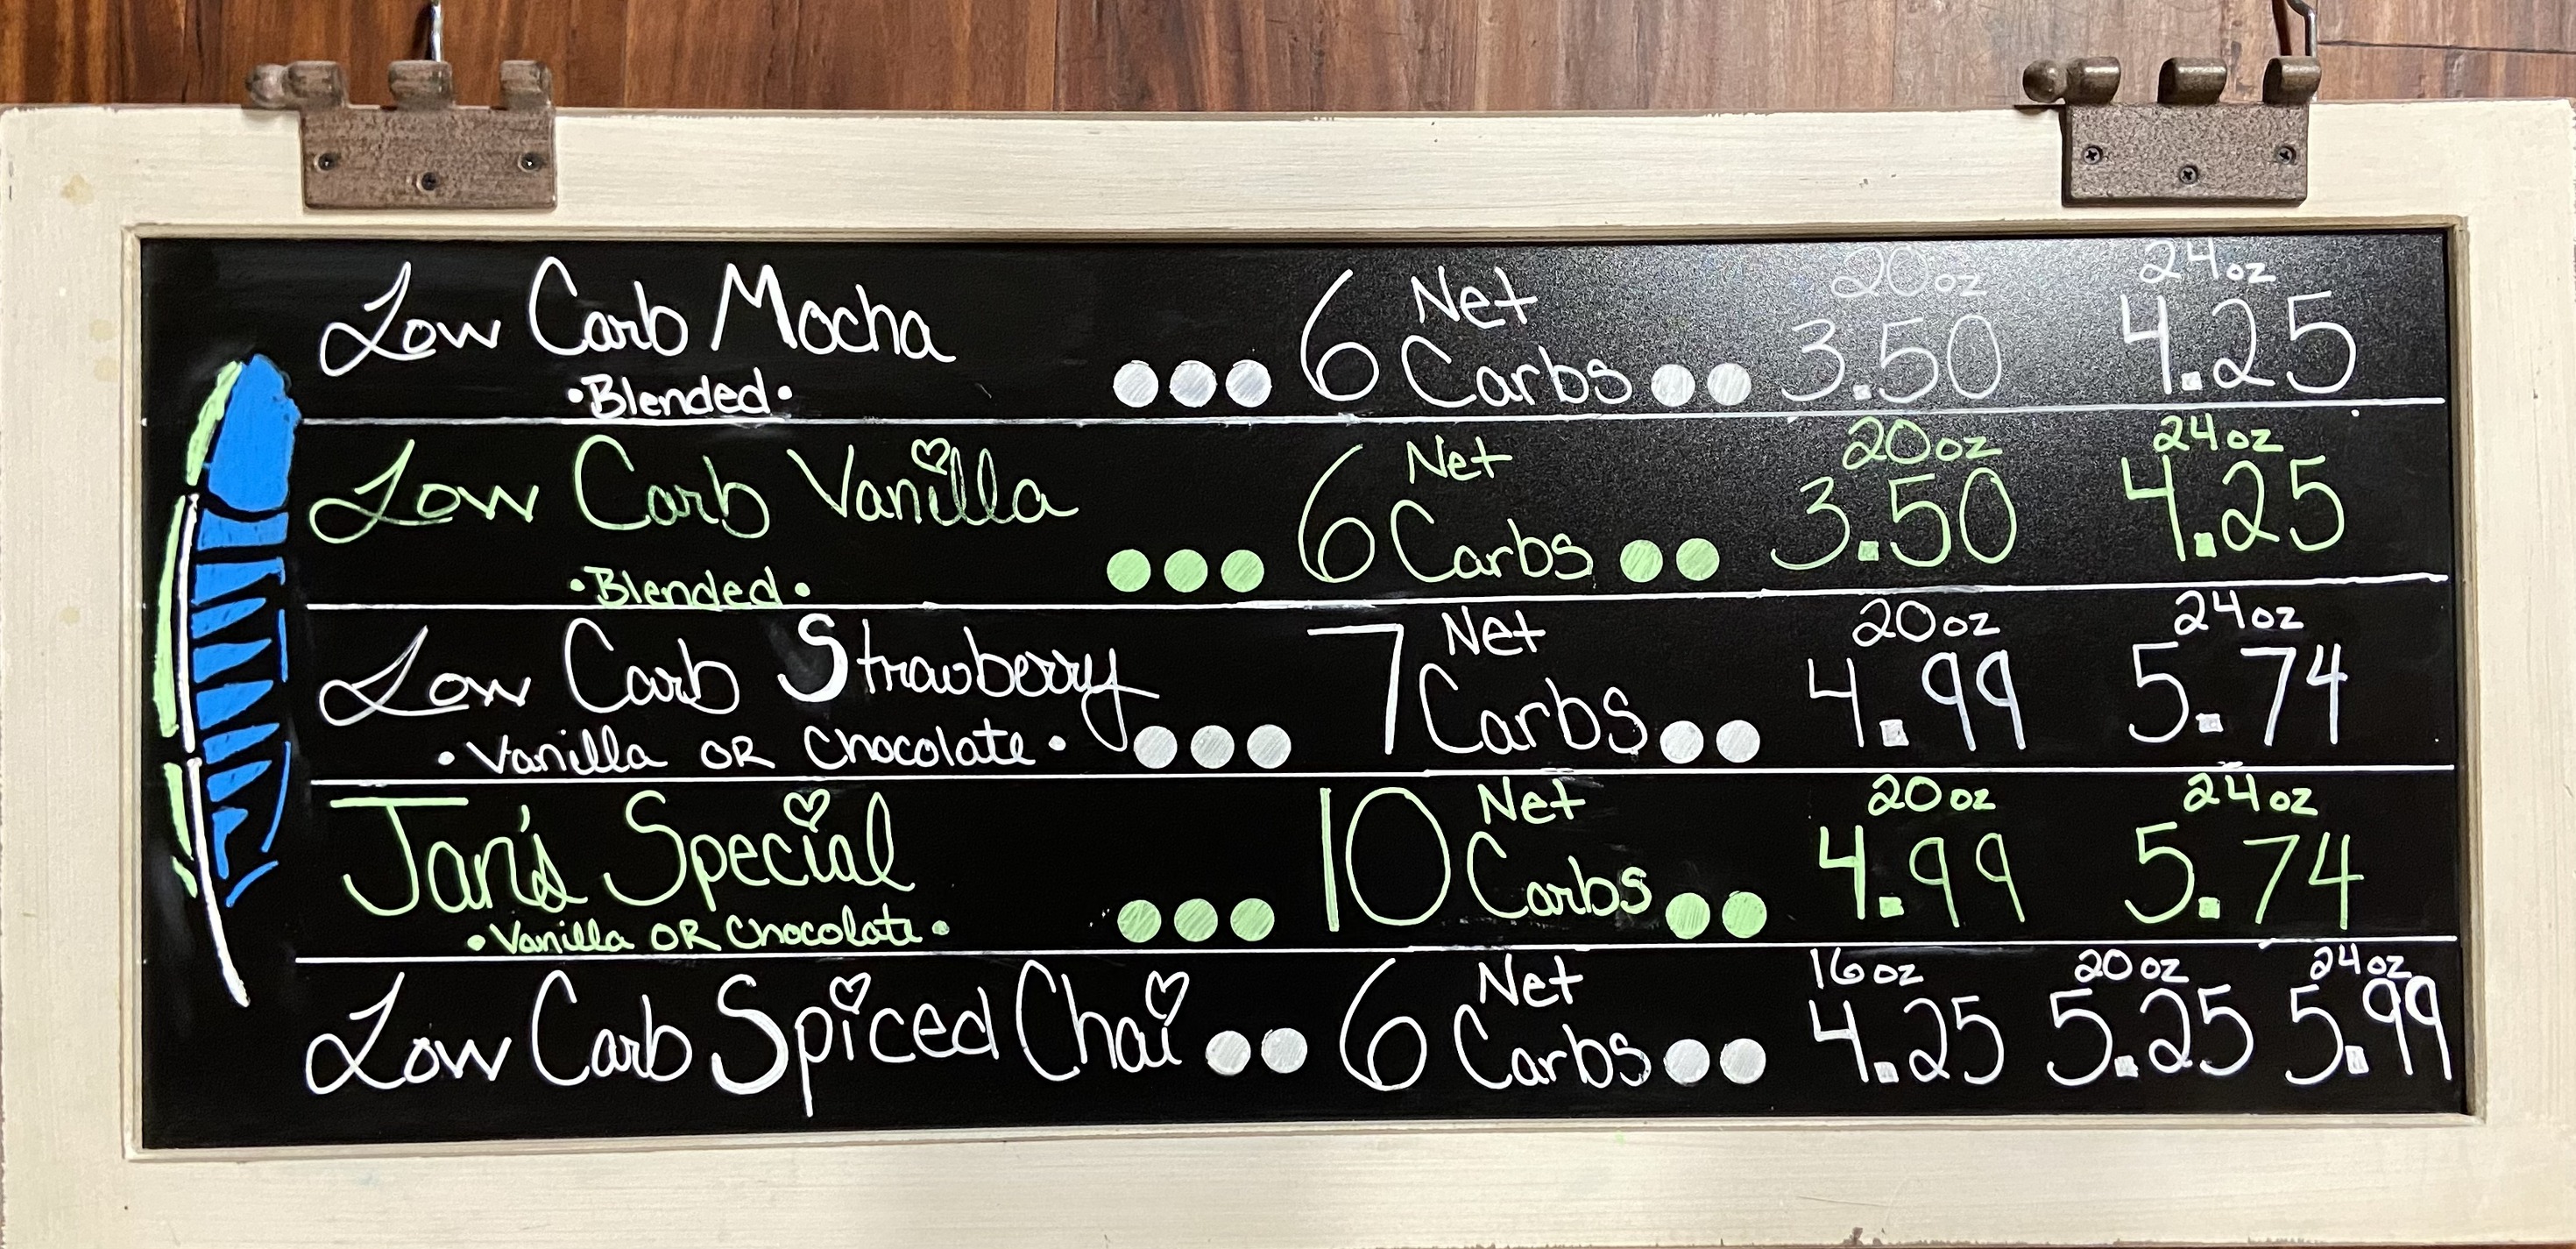 Low Carb Mocha ••• 6 Net Carbs •• 20oz 3.50 24oz 4.25
•Blended•
Low Carb Vanilla ••• 6 Net Carbs •• 20oz 3.50 24oz 4.25
•Blended•
Low Carb Strawberry ••• 7 Net Carbs •• 20oz 4.99 24oz 5.74
•Vanilla OR Chocolate•
Jan's Special ••• 10 Net Carbs •• 20oz 4.99 24oz 5.74
•Vanilla OR Chocolate•
Low Carb Spiced Chai •• 6 Net Carbs •• 16oz 4.25 20oz 5.25 24oz 5.99